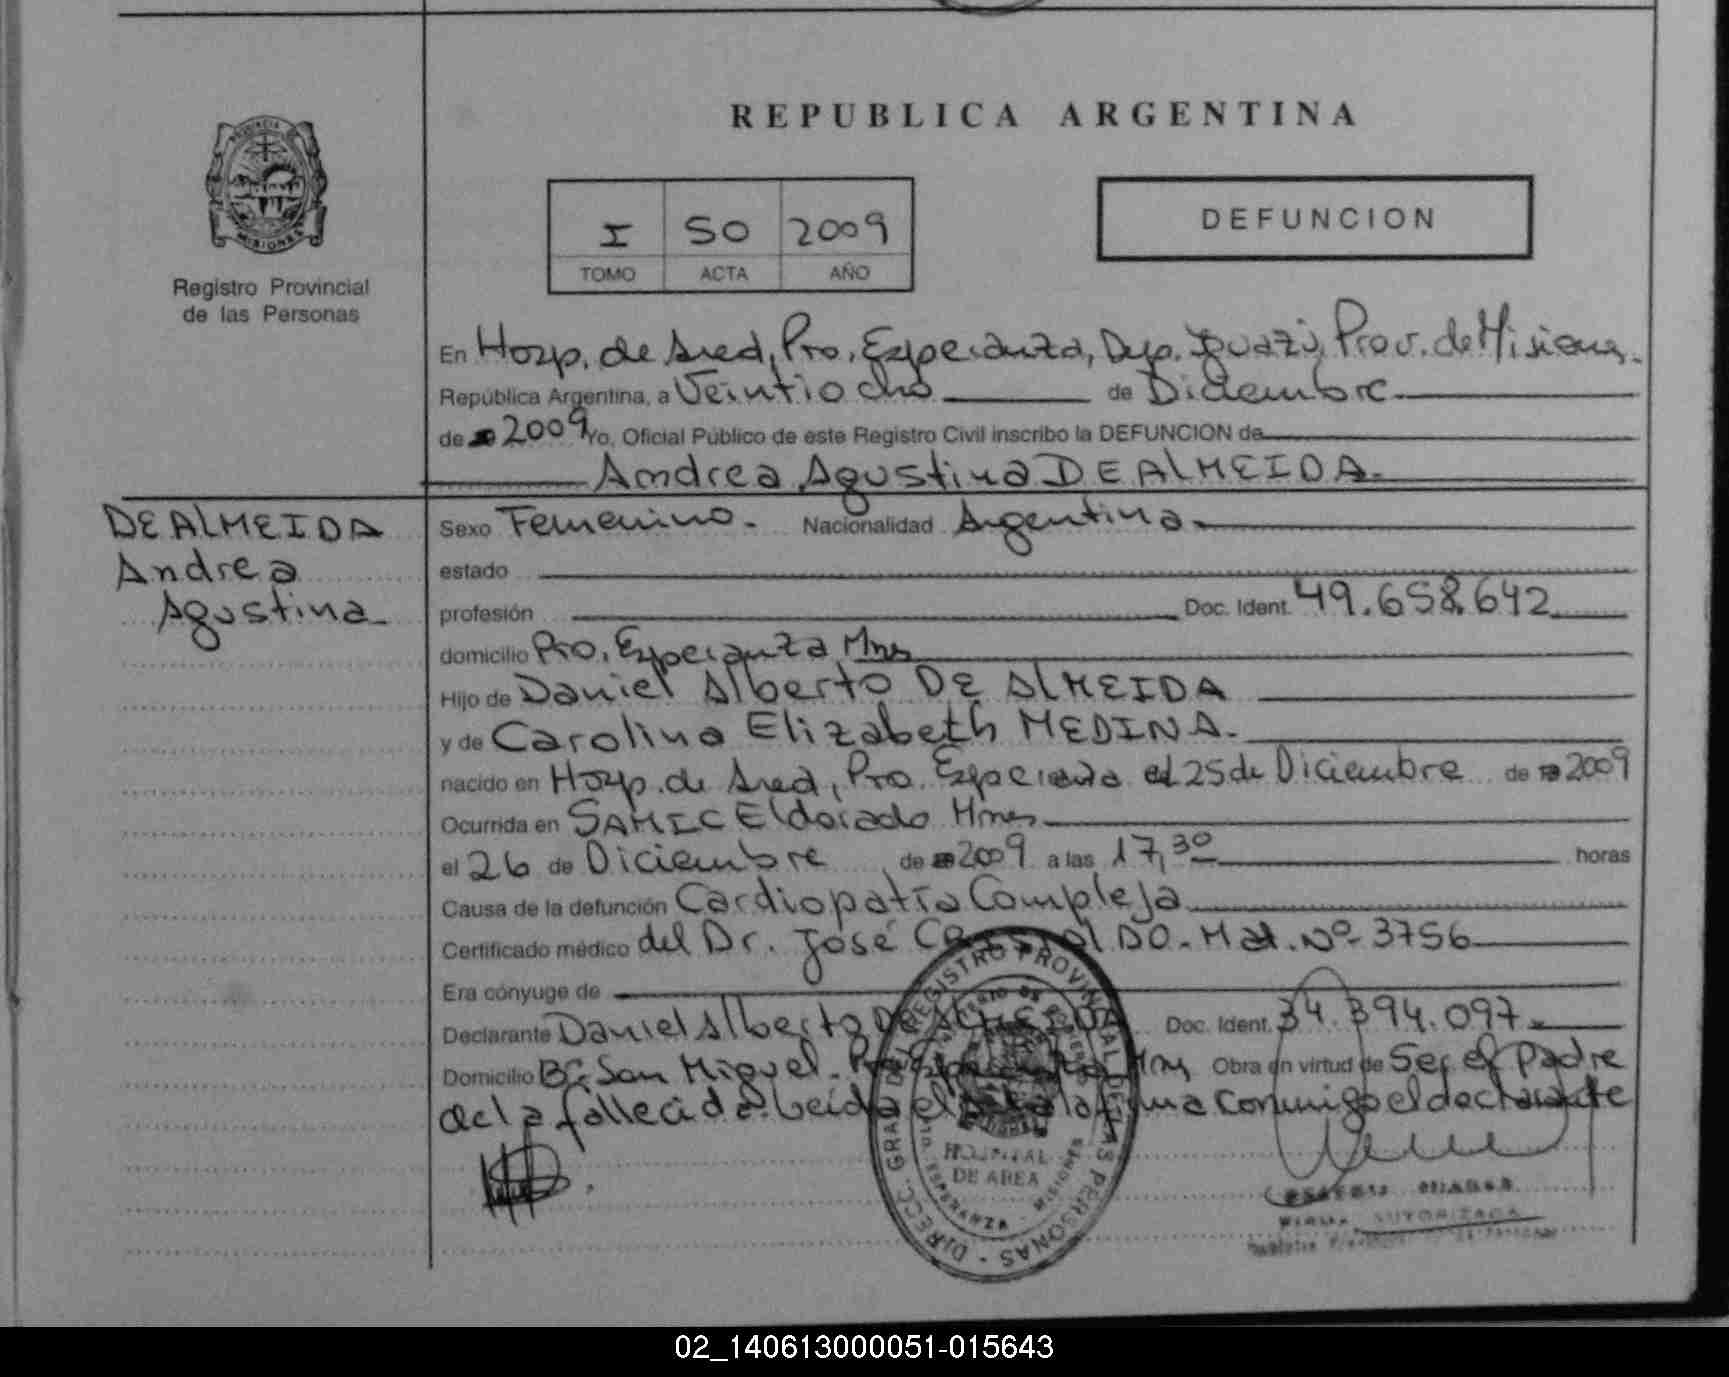 REPUBLICA ARGENTINA
PROVINCIA DE
MISIONES
Registro Provincial
de las Personas
I 50 2009
TOMO ACTA AÑO
DEFUNCION
En Hosp. de Area, Pto. Esperanza, Dep. Iguazú, Prov. de Misiones.
República Argentina, a Veintiocho de Diciembre
de 2009 Yo, Oficial Público de este Registro Civil inscribo la DEFUNCION de
Andrea Agustina DE ALMEIDA.
DE ALMEIDA
Andrea
Agustina
Sexo Femenino. Nacionalidad Argentina
estado
profesión Doc. Ident. 49.658.642
domicilio Pto. Esperanza Mnes
Hijo de Daniel Alberto DE ALMEIDA
y de Carolina Elizabeth MEDINA.
nacido en Hosp. de Area, Pto. Esperanza el 25 de Diciembre de 2009
Ocurrida en SAMIC Eldorado Mnes
el 26 de Diciembre de 2009 a las 17,30 horas
Causa de la defunción Cardiopatía Compleja
Certificado médico del Dr. José DO. Mat. Nº 3756
Era cónyuge de
Declarante Daniel Alberto DE ALMEIDA Doc. Ident. 34.394.097
Domicilio Bº San Miguel. Pto. Esperanza Mnes Obra en virtud de Ser el padre
de la fallecida. Leida el Acta la firma conmigo el declarante
DIRECC. GRAL. DEL REGISTRO PROVINCIAL DE LAS PERSONAS
HOSPITAL
DE AREA
ESPERANZA - MISIONES
FIRMA AUTORIZADA
02_140613000051-015643